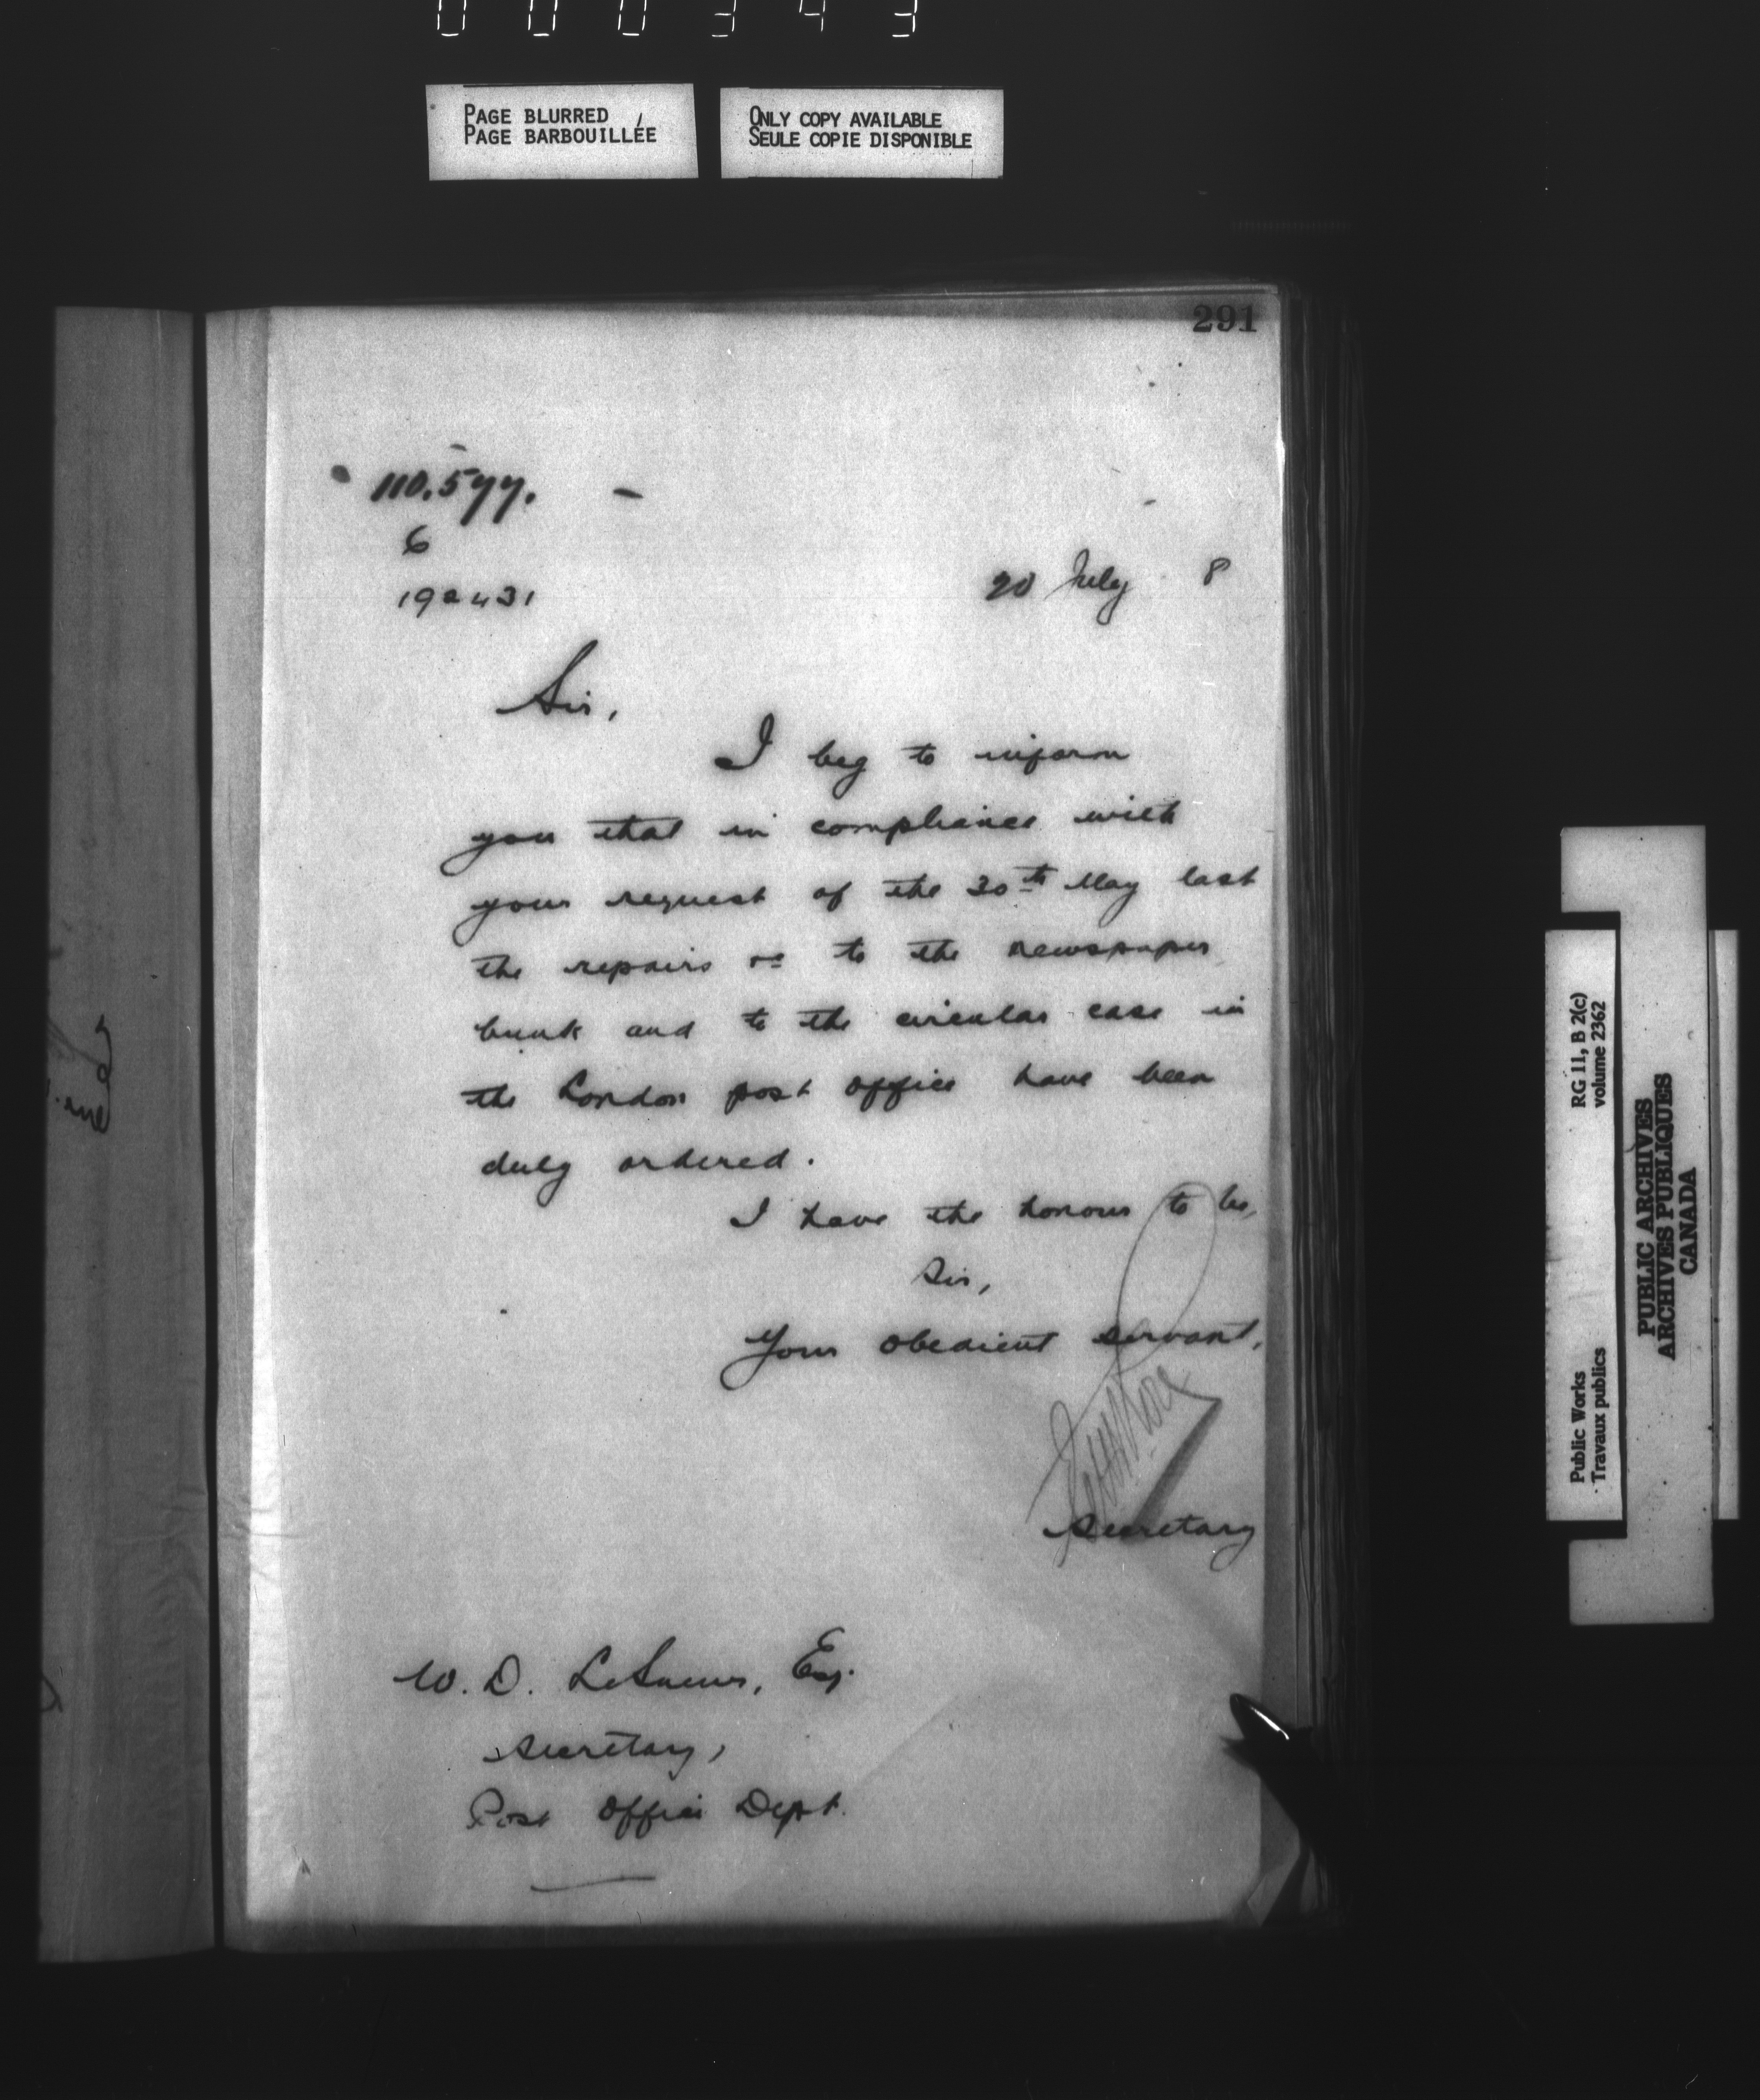 000343
PAGE BLURRED
PAGE BARBOUILLÉE
ONLY COPY AVAILABLE
SEULE COPIE DISPONIBLE
291
110.577.
6
192431
20 July 8
Sir,
I beg to inform
you that in compliance with
your request of the 30th May last
the repairs to the newspaper
bunk and to the circular case in
the London post office have been
duly ordered.
I have the honour to be,
Sir,
Your obedient servant,
Secretary
W. D. LeSueur, Esq.
Secretary,
Post Office Dept.
RG 11, B 2(c)
volume 2362
Public Works
Travaux publics
PUBLIC ARCHIVES
ARCHIVES PUBLIQUES
CANADA